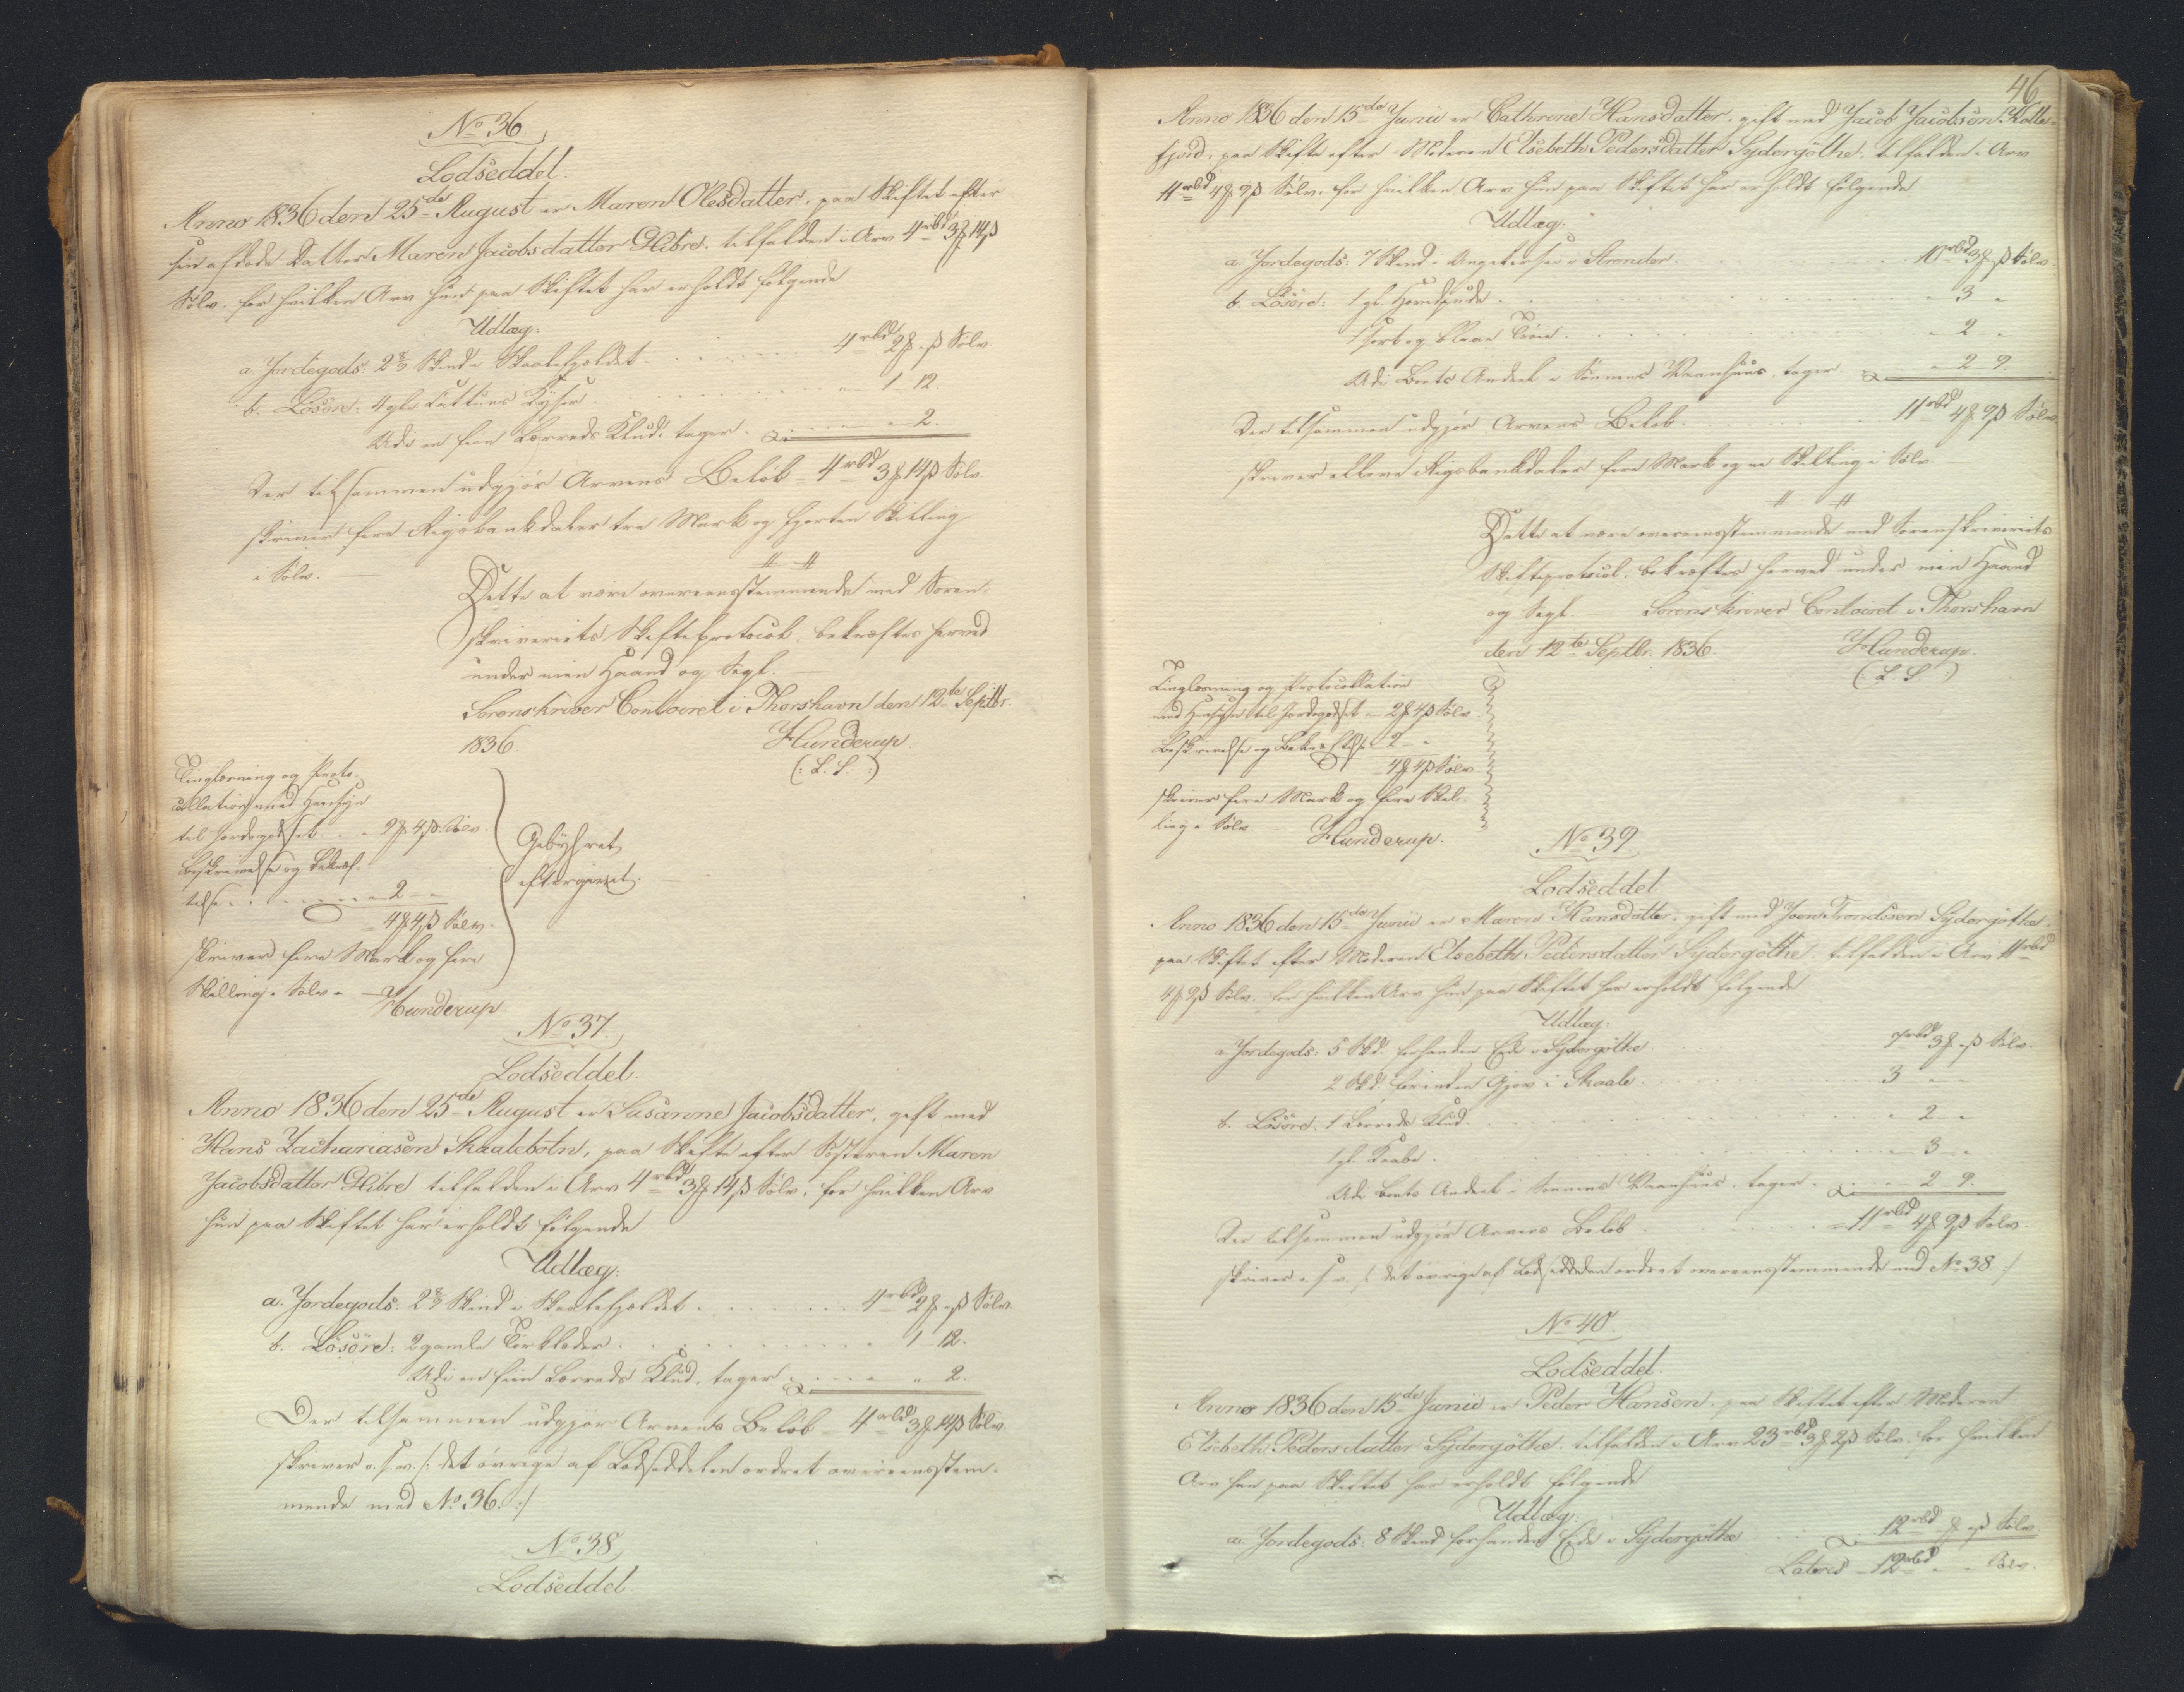 No 36
Lodseddel.
Anno 1836 den 25de August er Maren Olesdatter, paa Skiftet efter
sin afdøde Datter Maren Jacobsdatter Glibre, tilfalden i Arv 4rbd 3 14
Sølv, for hvilken Arv hun paa Skiftet har erholdt følgende
Udlæg:
a. Jordegods: 2 Skind i Skaalefjældet 4rbd 2 Sølv.
b. Løsøre: 4 gle 1 12.
Udi en fiin Lærreds Klud, tager 2.
Der tilsammen udgjør Arvens Beløb 4rbd 3 14 Sølv
skriver fire Rigsbankdaler tre Mark og fjorten Skilling
i Sølv.
Dette at være overeensstemmende med Soren-
skriveriets Skifteprotocol, bekræftes herved
under min Haand og Segl.
Sorenskriver Contoiret i Thorshavn den 12te Septbr.
1836.
Hunderup
(: L. S. :)
Tinglæsning og Proto-
collation med Hensyn
til Jordegodset 2 4 Sølv.
Beskrivelse og Bekræf-
telse 2
4 4 Sølv.
skriver fire Mark og fire
Skilling i Sølv.
Hunderup
Gebyhret
eftergivet.
No 37.
Lodseddel.
Anno 1836 den 25de August er Susanne Jacobsdatter, gift med
Hans Zachariasen Skaalebotn, paa Skifte efter Søsteren Maren
Jacobsdatter Glibre tilfalden i Arv 4rbd 3 14 Sølv, for hvilken Arv
hun paa Skiftet har erholdt følgende
Udlæg:
a. Jordegods: 2 Skind i Skaalefjældet 4rbd 2 Sølv.
b. Løsøre: 2 gamle Tørklæder 1 12.
Udi en fiin Lærreds Klud, tager 2.
Der tilsammen udgjør Arvens Beløb 4rbd 3 14 Sølv.
skriver o. s. v. /: det øvrige af Lodseddelen ordret overeensstem-
mende med No 36. :/
No 38
Lodseddel.
46
Anno 1836 den 15de Junii er Cathrine Hansdatter, gift med Jacob Jacobsen Kolle-
fjord, paa Skifte efter Moderen Elsebeth Pedersdatter Sydergöthe, tilfalden i Arv
11rbd 4 9 Sølv, for hvilken Arv hun paa Skiftet har erholdt følgende
Udlæg:
a. Jordegods: 7 Skind i Strender 10rbd 3 Sølv.
b. Løsøre: 1 gl. Hovedpude 3
1 sort og blaae Trøie 2
Udi Boets Andeel i Sønnens Vaanhuus, tager 2 9.
Der tilsammen udgjør Arvens Beløb 11rbd 4 9 Sølv.
skriver elleve Rigsbankdaler fire Mark og ni Skilling i Sølv
Dette at være overeensstemmende med Sorenskriveriets
Skifteprotocol, bekræftes herved under min Haand
og Segl. Sorenskriver Contoiret i Thorshavn
den 12te Septbr. 1836. Hunderup.
(: L. S. :)
Tinglæsning og Protocollation
med Hensyn til Jordegodset 2 4 Sølv
Beskrivelse og Bekræftelse 2
4 4 Sølv.
skriver fire Mark og fire Skil-
ling i Sølv. Hunderup.
No 39.
Lodseddel.
Anno 1836 den 15de Junii er Maren Hansdatter, gift med Joen Trondssen Sydergöthe
paa Skiftet efter Moderen Elsebeth Pedersdatter Sydergöthe, tilfalden i Arv 11rbd
4 9 Sølv, for hvilken Arv hun paa Skiftet har erholdt følgende
Udlæg:
a. Jordegods: 5 Skd. Eide i Sydergöthe 7rbd 3 Sølv.
2 Skd. Gjov i Skaale 3
b. Løsøre: 1 Lærreds Klud 2
1 gl. Kaabe 3
Udi Boets Andeel i Sønnens Vaanhuus, tager 2 9.
Der tilsammen udgjør Arvens Beløb 11rbd 4 9 Sølv.
skriver o. s. v. /: det øvrige af Lodseddelen ordret overeensstemmende med No 38 :/
No 40.
Lodseddel.
Anno 1836 den 15de Junii er Peder Hansen, paa Skiftet efter Moderen
Elsebeth Pedersdatter Sydergöthe, tilfalden i Arv 23rbd 3 2 Sølv, for hvilken
Arv han paa Skiftet har erholdt følgende
Udlæg:
a. Jordegods: 8 Skind Eide i Sydergöthe 12rbd Sølv
Lateris 12rbd Sølv.